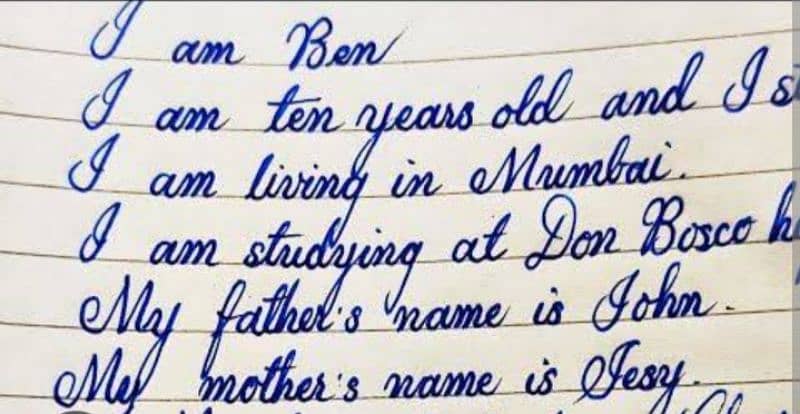 I am Ben
I am ten years old and I
I am living in Mumbai.
I am studying at Don Bosco
My father's name is John.
My mother's name is Jesy.